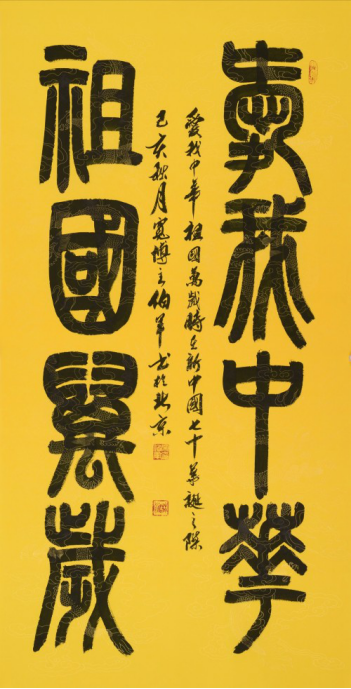 愛我中華
祖國萬歲
愛我中華祖國萬歲時在新中國七十華誕之際
己亥秋月寬博主伯軍书於北京